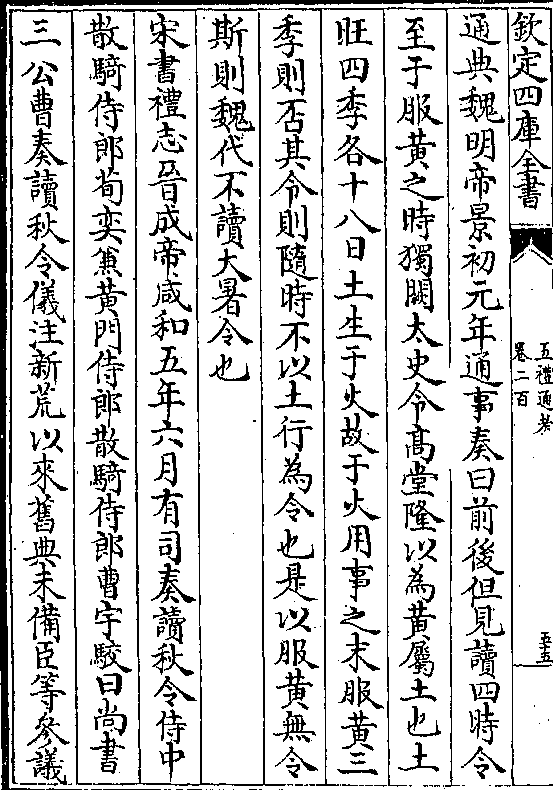 欽定四庫全書
五禮通考
卷二百
五十五
通典魏明帝景初元年通事奏曰前後但見讀四時令
至于服黃之時獨闕太史令高堂隆以為黃屬土也土
旺四季各十八日土生于火故于火用事之末服黃三
季則否其令則隨時不以土行為令也是以服黃無令
斯則魏代不讀大暑令也
宋書禮志晉成帝咸和五年六月有司奏讀秋令侍中
散騎侍郎荀奕兼黃門侍郎散騎侍郎曹宇駮曰尚書
三公曹奏讀秋令儀注新荒以來舊典未備臣等參議